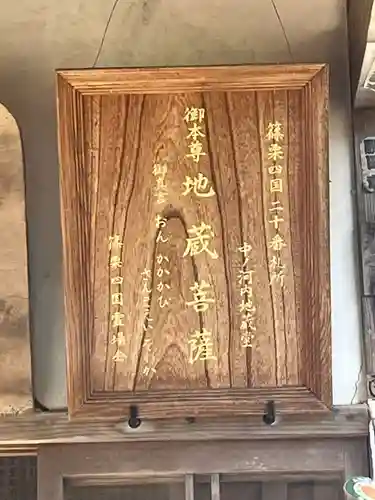 篠栗四国二十番札所
中ノ河内地蔵堂
御本尊 地蔵菩薩
御真言 おん かかかび
さんまえい そわか
篠栗四国霊場会